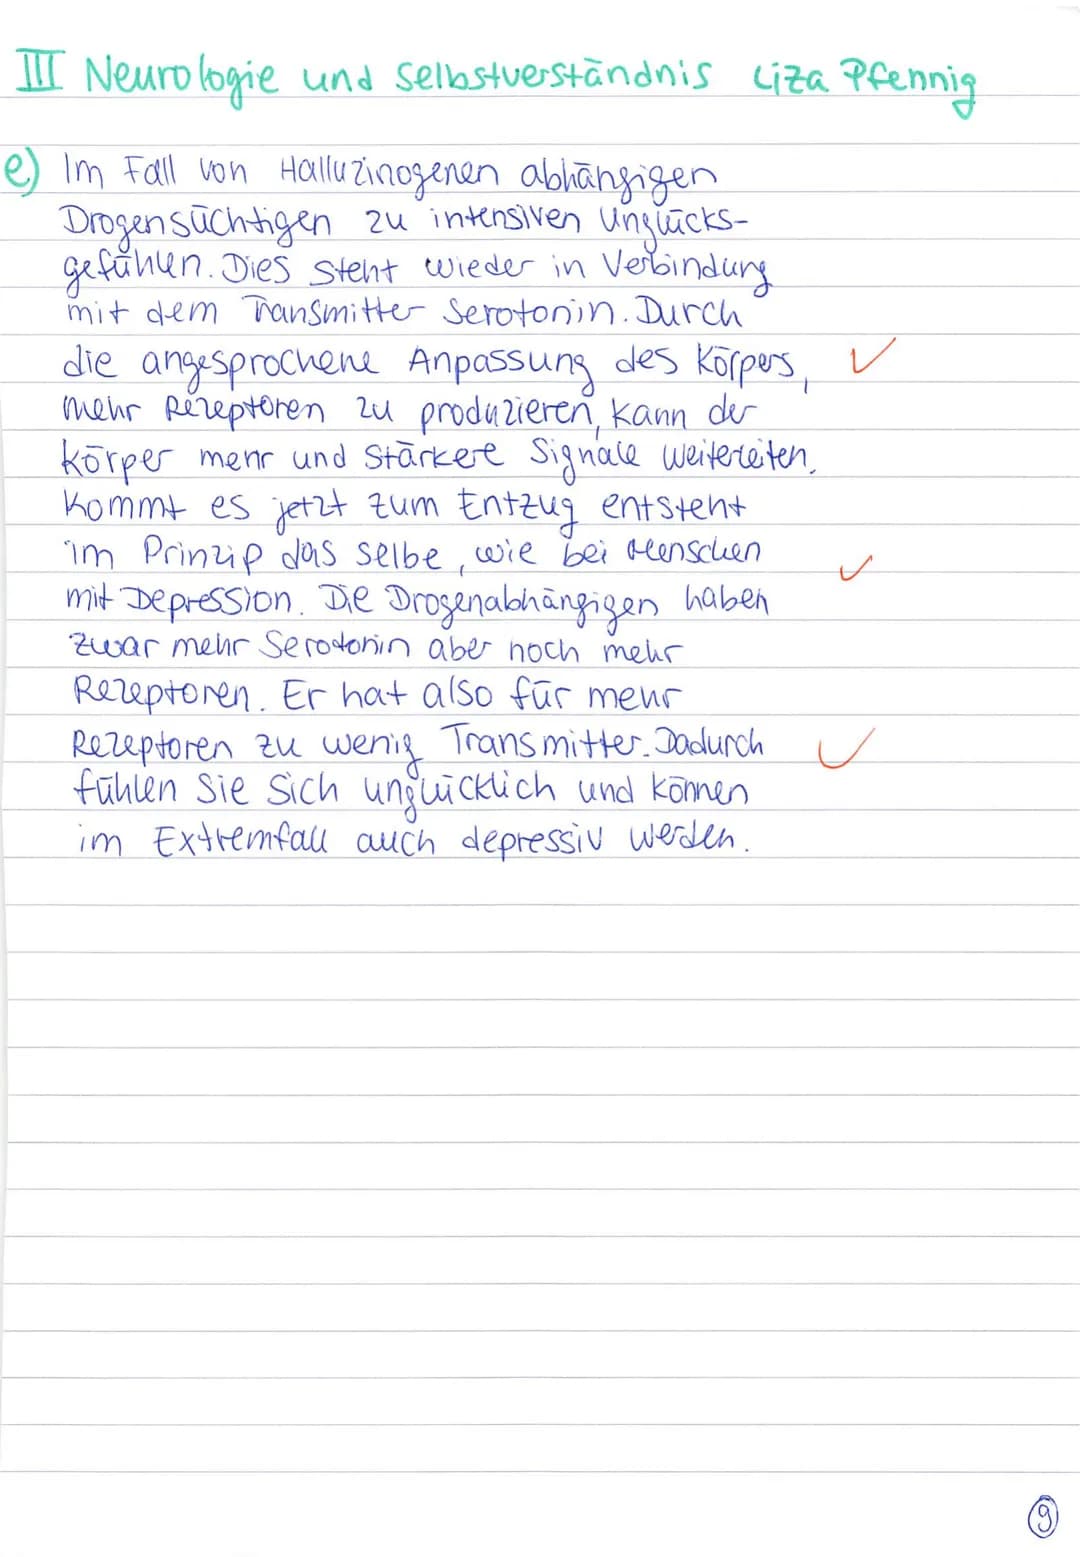 III Neurologie und Selbstverständnis Liza Pfennig
e) Im Fall von Halluzinogenen abhängigen
Drogensüchtigen zu intensiven Unglücks-
gefühlen. Dies steht wieder in Verbindung
mit dem Transmitter Serotonin. Durch
die angesprochene Anpassung des Körpers,
mehr Rezeptoren zu produzieren, kann der
Körper mehr und stärkere Signale weitereiten.
Kommt es jetzt zum Entzug entsteht
im Prinzip das selbe, wie bei Menschen
mit Depression. Die Drogenabhängigen haben
zwar mehr Serotonin aber noch mehr
Rezeptoren. Er hat also für mehr
Rezeptoren zu wenig Transmitter. Dadurch
fühlen Sie sich unglücklich und können
im Extremfall auch depressiv werden.
9